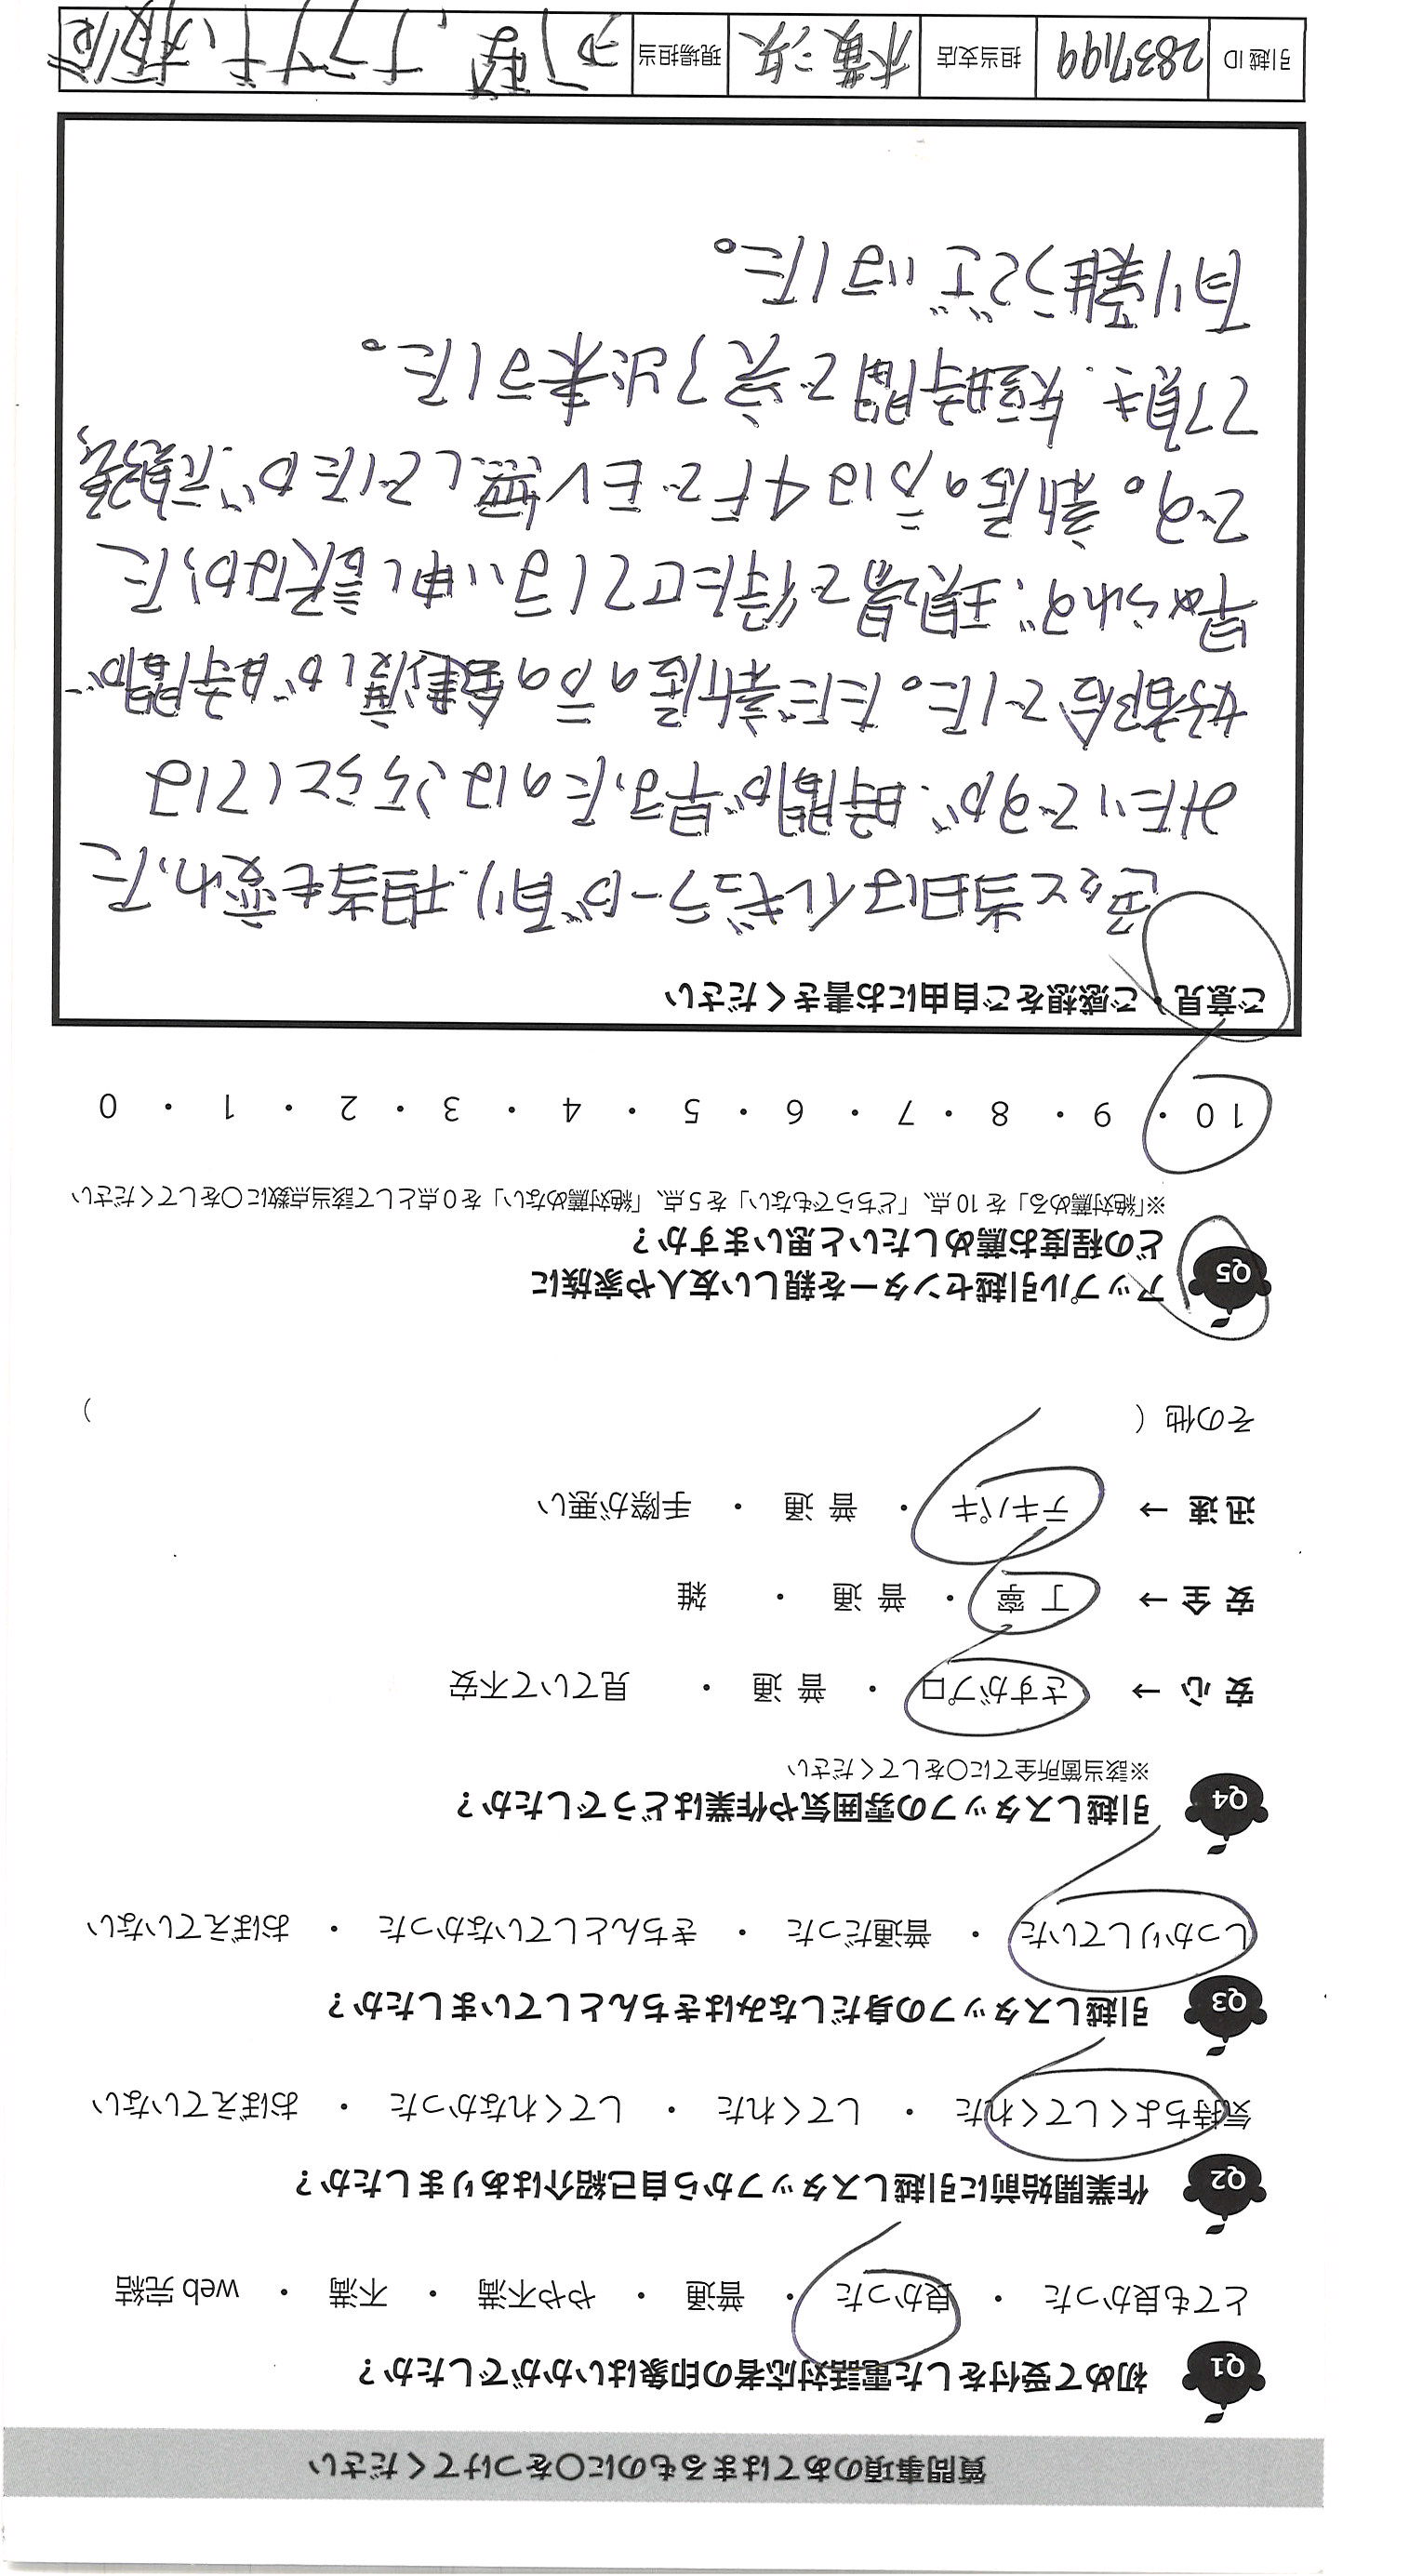 質問事項のあてはまるものに○をつけてください
Q1 初めて受付をした電話対応者の印象はいかがでしたか？
とても良かった ・ 良かった ・ 普通 ・ やや不満 ・ 不満 ・ web 完結
Q2 作業開始前に引越しスタッフから自己紹介はありましたか？
気持ちよくしてくれた ・ してくれた ・ してくれなかった ・ おぼえていない
Q3 引越しスタッフの身だしなみはきちんとしていましたか？
しっかりしていた ・ 普通だった ・ きちんとしていなかった ・ おぼえていない
Q4 引越しスタッフの雰囲気や作業はどうでしたか？
※該当箇所全てに○をしてください
安 心 → さすがプロ ・ 普 通 ・ 見ていて不安
安 全 → 丁 寧 ・ 普 通 ・ 雑
迅 速 → テキパキ ・ 普 通 ・ 手際が悪い
その他（ ）
Q5 アップル引越センターを親しい友人や家族に
どの程度お薦めしたいと思いますか？
※「絶対薦める」を 10 点、「どちらでもない」を 5 点、「絶対薦めない」を 0 点として該当点数に○をしてください
10 ・ 9 ・ 8 ・ 7 ・ 6 ・ 5 ・ 4 ・ 3 ・ 2 ・ 1 ・ 0
ご意見・ご感想をご自由にお書きください
当日はイレギュラーが有り、担当も変わった
みたいですが、時間が早まったのはこちらとしては
好都合でした。ただ新居の方の鍵渡しが時間が
早められず、現場で待たせてしまい申し訳なかった
です。新居の方は4FでEV無しでしたが
て頂き、短時間で完了出来ました。
有り難うございました。
引越 ID 2837199 担当支店 現場担当